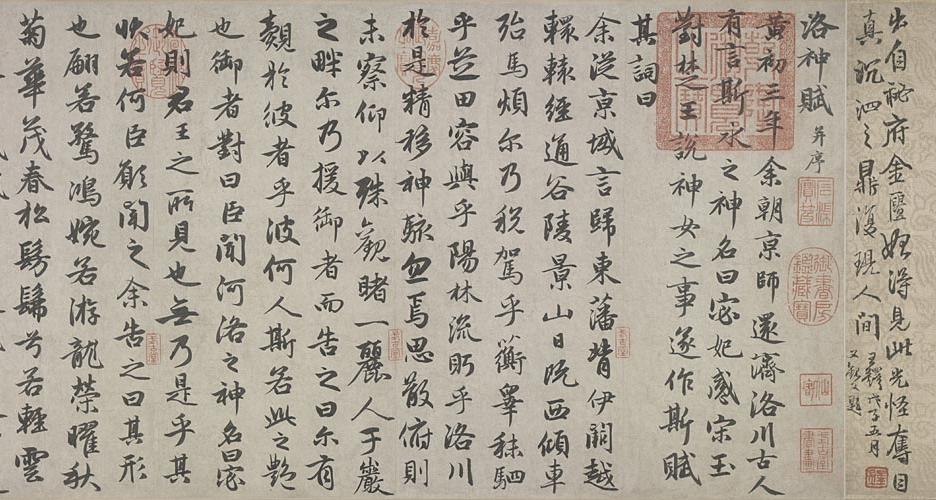 出自秘府金匱始得見此光怪奪目
真沉泗之鼎復現人間
又題
洛神賦 并序
黃初三年余朝京師還濟洛川古人
有言斯水之神名曰宓妃感宋玉
對楚王說神女之事遂作斯賦
其詞曰
余從京域言歸東藩背伊闕越
轘轅經通谷陵景山日既西傾車
殆馬煩爾乃稅駕乎蘅皋秣駟
乎芝田容與乎陽林流眄乎洛川
於是精移神駭忽焉思散俯則
未察仰以殊觀睹一麗人于巖
之畔爾乃援御者而告之曰爾有
覿於彼者乎彼何人斯若此之艷
也御者對曰臣聞河洛之神名曰宓
妃則君王之所見也無乃是乎其
狀若何臣願聞之余告之曰其形
也翩若驚鴻婉若游龍榮曜秋
菊華茂春松髣髴兮若輕雲